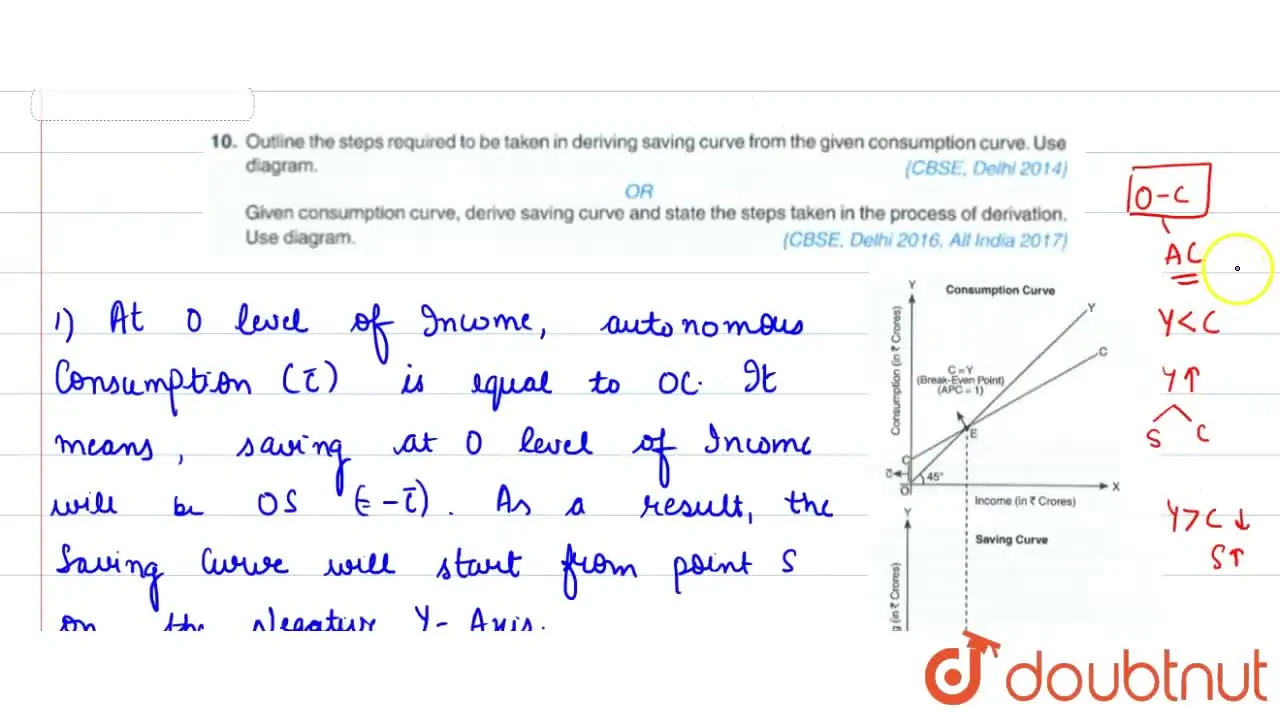 10. Outline the steps required to be taken in deriving saving curve from the given consumption curve. Use
diagram. (CBSE, Delhi 2014)
OR
Given consumption curve, derive saving curve and state the steps taken in the process of derivation.
Use diagram. (CBSE, Delhi 2016, All India 2017)
1) At 0 level of Income, autonomous
Consumption (C̄) is equal to OC. It
means, saving at 0 level of Income
will be OS (= -C̄). As a result, the
Saving Curve will start from point S
on the Negative Y-Axis.
Y
Consumption Curve
Consumption (in ₹ Crores)
Y
C
C = Y
(Break-Even Point)
(APC = 1)
E
C
C̄
45°
O
X
Income (in ₹ Crores)
Y
Saving Curve
g (in ₹ Crores)
O-C
AC
Y<C
Y↑
S C
Y>C↓
S↑
doubtnut